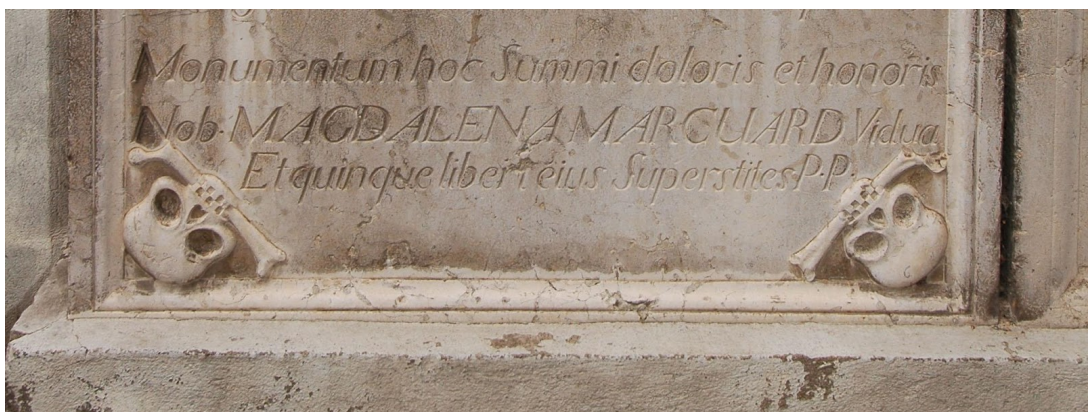 Monumentum hoc Summi doloris et honoris
Nob. MAGDALENA MARCUARD Vidua
Et quinque liberi eius Superstites P. P.